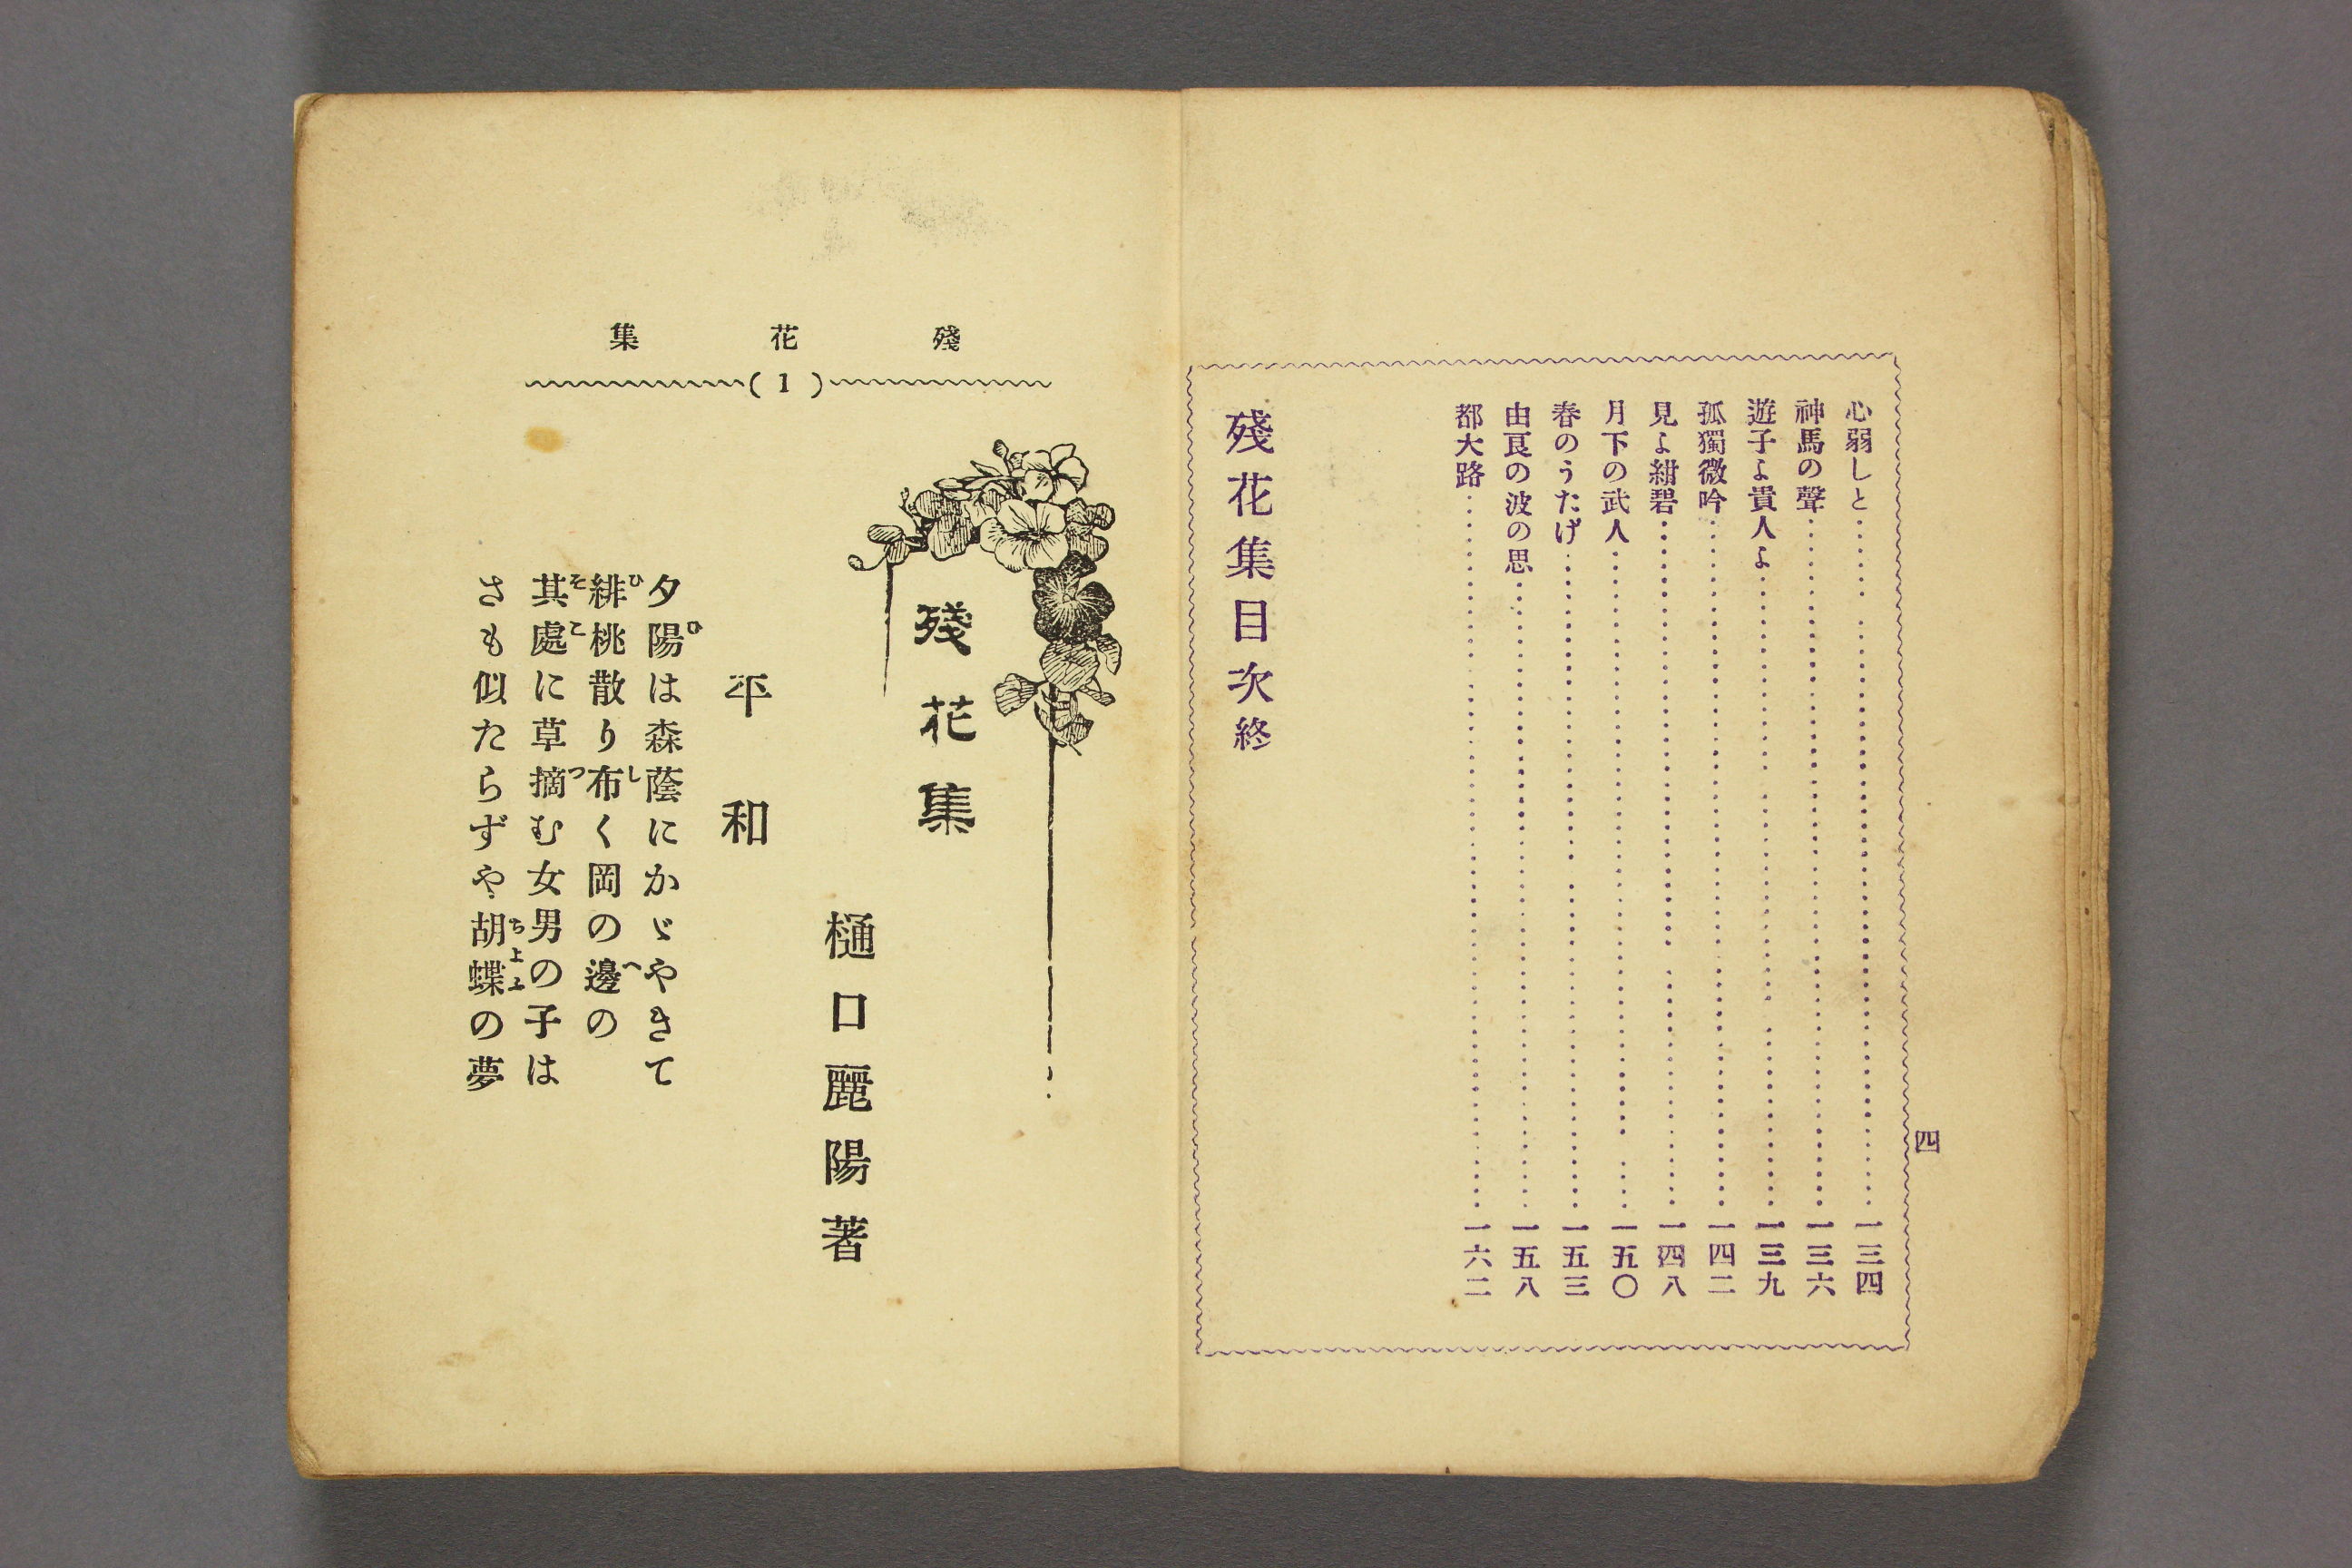 四
心弱しと……一三四
神馬の聲……一三六
遊子よ貴人よ……一三九
孤獨微吟……一四二
見よ紺碧……一四八
月下の武人……一五〇
春のうたげ……一五三
由良の波の思……一五八
都大路……一六二
殘花集目次終
殘花集
(1)
殘花集
樋口麗陽著
平和
夕陽は森蔭にかゞやきて
緋桃散り布く岡の邊の
其處に草摘む女男の子は
さも似たらずや胡蝶の夢